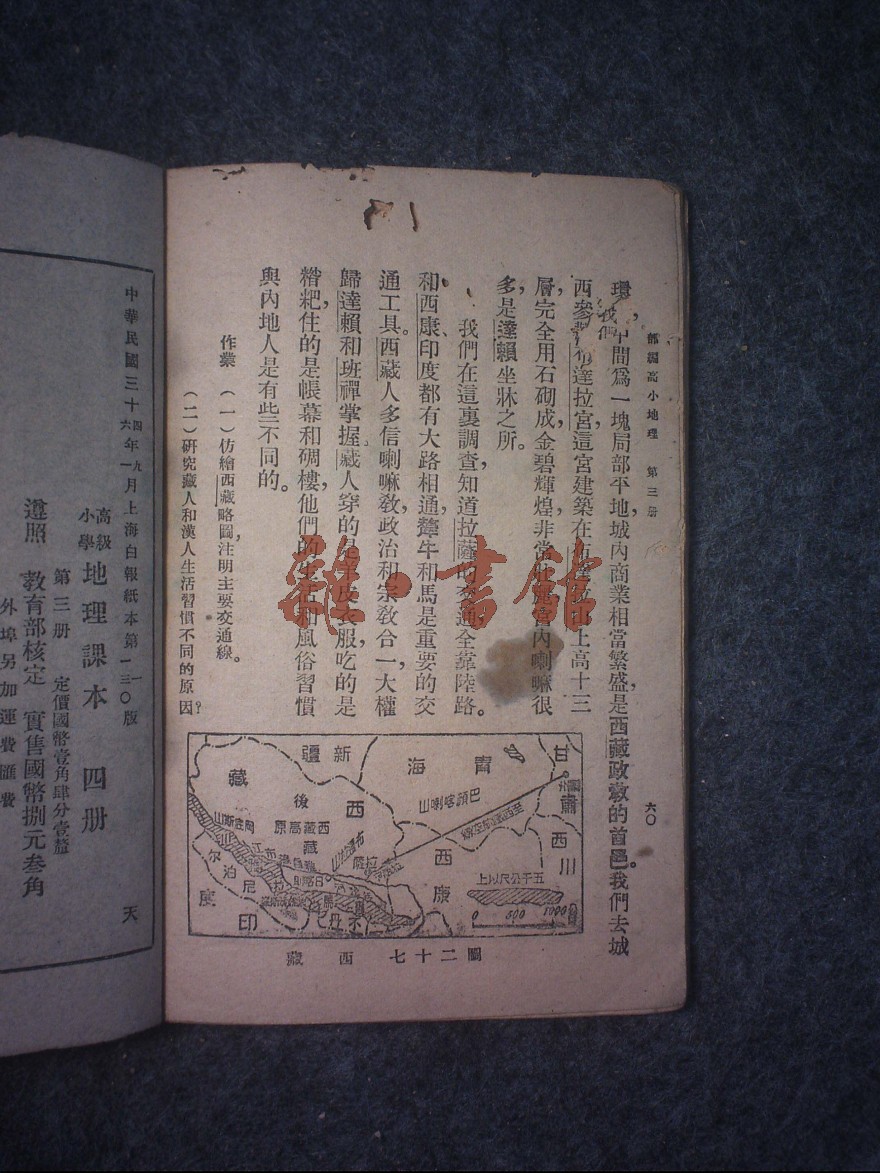 部編高小地理　第三册
六〇
環,中間爲一塊局部平地,城內商業相當繁盛,是西藏政敎的首邑。我們去城
西參達拉宮,這宮建築在山上,高十三
層,完全用石砌成,金碧輝煌,非常宮內喇嘛很
多,是達賴坐牀之所。
我們在這裏調查,知道拉薩的交通,全靠陸路。
和西康、印度都有大路相通,犛牛和馬是重要的交
通工具。西藏人多信喇嘛敎,政治和宗敎合一,大權
歸達賴和班禪掌握,藏人穿的是羊皮衣服,吃的是
糌粑,住的是帳幕和碉樓,他們的生活和風俗習慣
與內地人是有些不同的。
作業　(一)仿繪西藏略圖,注明主要交通線。
(二)研究藏人和漢人生活習慣不同的原因?
新疆
靑海
甘肅
西藏
後藏
西藏高原
巴顏喀喇山
岡底斯山
西康
四川
拉薩
尼泊爾
不丹
印度
五千公尺以上
0　500　1000
圖二十七　西藏
中華民國三十四年九月上海白報紙本第一版
六年一月
一三〇版
高級小學 地理課本　四册
第三册　定價國幣壹角肆分壹釐
遵照　敎育部核定　實售國幣捌元叁角
外埠另加運費匯費
天
雜·書館